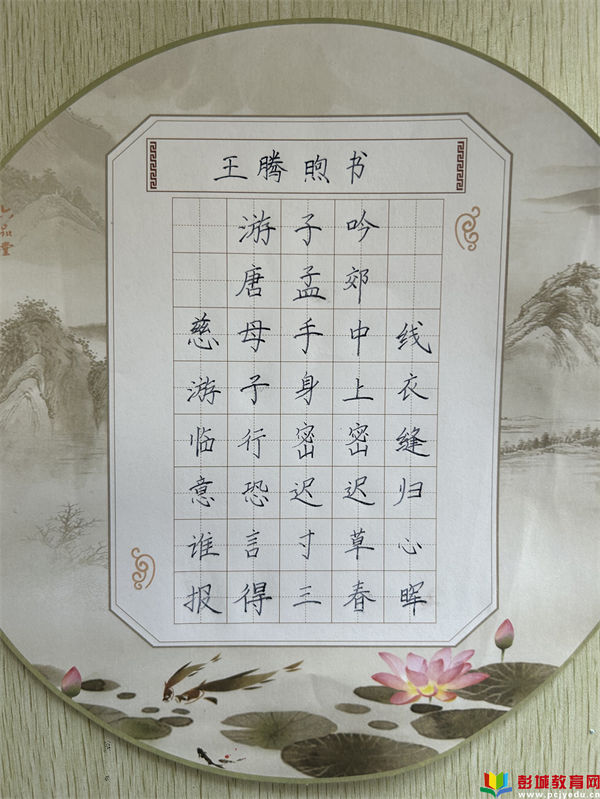 王腾煦书
游子吟
唐孟郊
慈母手中线
游子身上衣
临行密密缝
意恐迟迟归
谁言寸草心
报得三春晖
六品堂
彭城教育网
www.pcjyedu.cn